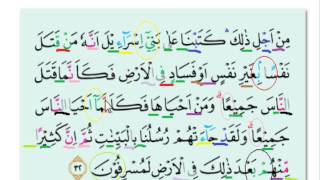 مِنْ اَجْلِ ذٰلِكَ ۛ كَتَبْنَا عَلٰى بَنِيْٓ اِسْرَاۤءِيْلَ اَنَّهٗ مَنْ قَتَلَ
نَفْسًاۢ بِغَيْرِ نَفْسٍ اَوْ فَسَادٍ فِى الْاَرْضِ فَكَاَنَّمَا قَتَلَ
النَّاسَ جَمِيْعًاۗ وَمَنْ اَحْيَاهَا فَكَاَنَّمَآ اَحْيَا النَّاسَ
جَمِيْعًاۗ وَلَقَدْ جَاۤءَتْهُمْ رُسُلُنَا بِالْبَيِّنٰتِ ثُمَّ اِنَّ كَثِيْرًا
مِّنْهُمْ بَعْدَ ذٰلِكَ فِى الْاَرْضِ لَمُسْرِفُوْنَ ٣٢